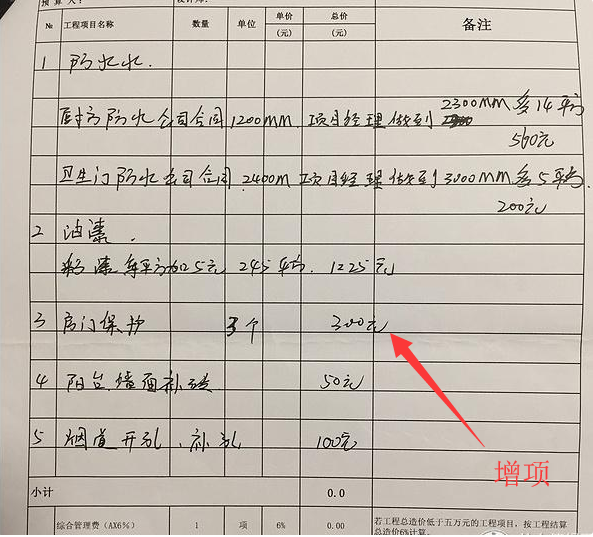 预 算 人：
№ 工程项目名称 数量 单位 单价(元) 总价(元) 备注
1 防水水.
厨方防水公司合同1200MM. 项目经理做到 2300MM多14平方
560元
卫生门防水公司合同.2400M 项目经理做到3000MM多5平方.
200元
2 油漆.
彩漆每平方加25元 245平方. 1225元
3 房门保护 3个 300元
4 阳台.墙面补 50元
5 烟道开孔.补孔 100元
增项
小计 0.0
综合管理费(AX6%) 1 项 6% 0.00 若工程总造价低于五万元的工程项目，按工程结算
总造价6%计算。